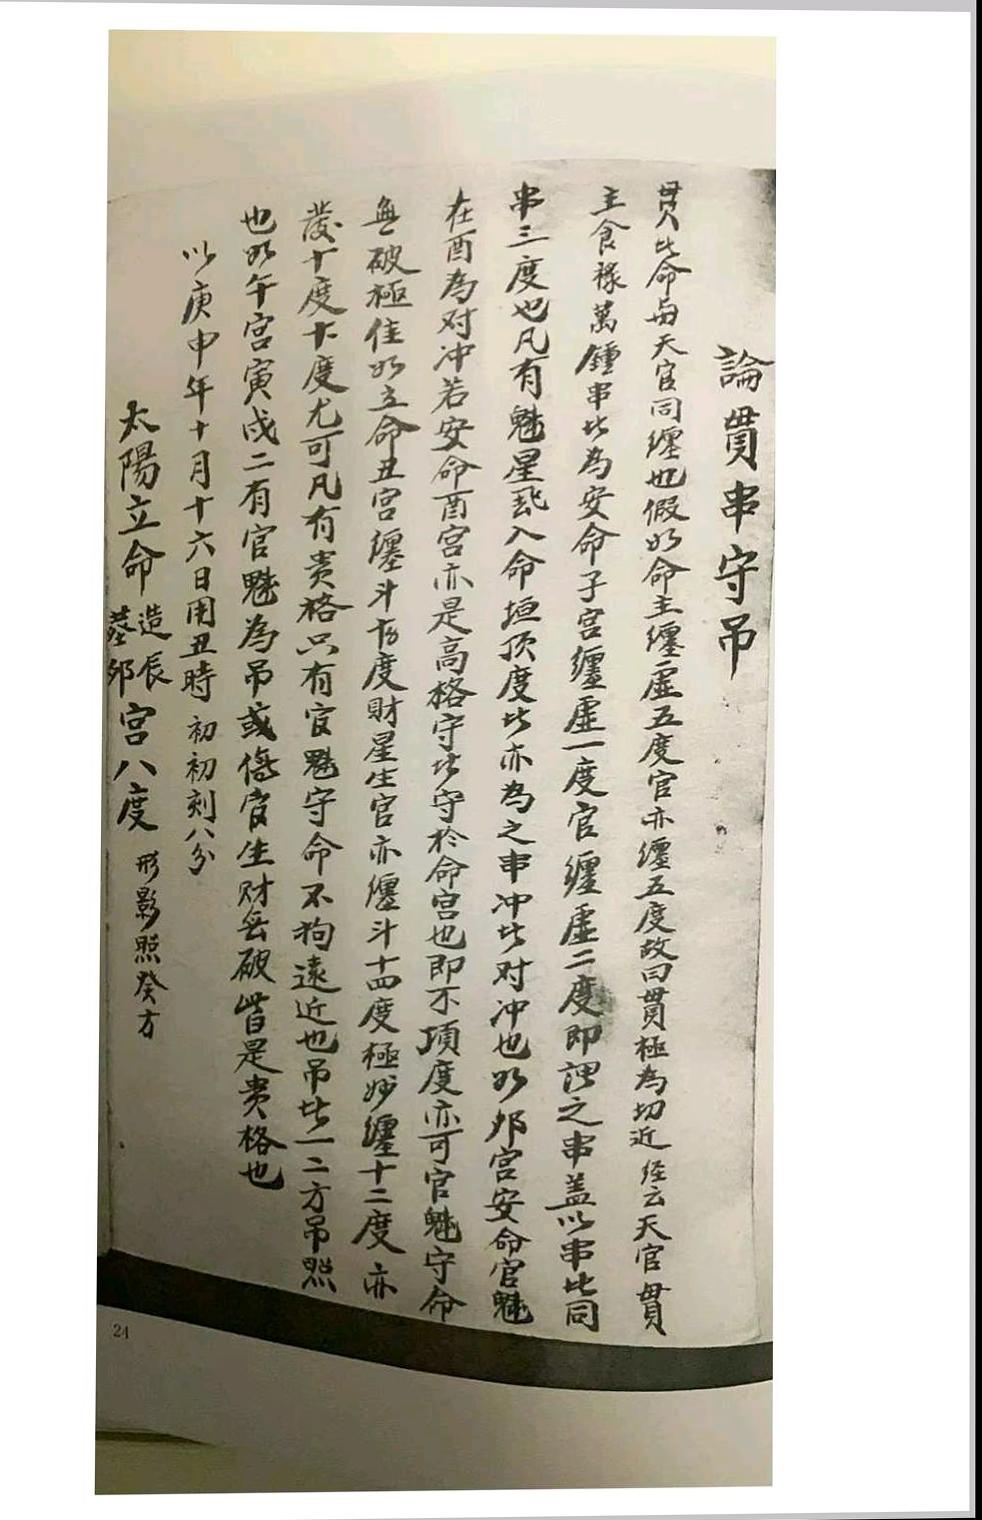 論貫串守吊
貫此命与天官同纏也假如命主纏虛五度官亦纏五度故曰貫極為切近 経云天官貫
主食祿萬鍾串此為安命子宮纏虛一度官纏虛二度即謂之串盖以串此同
串三度也凡有魁星飛入命垣頂度此亦為之串冲此对冲也如夘宮安命官魁
在酉為对冲若安命酉宮亦是高格守此守於命宮也即不頂度亦可官魁守命
無破極佳如立命丑宮纏斗度財星生官亦纏斗十四度極妙纏十二度亦
發十度十度尤可凡有贵格只有官魁守命不狥遠近也吊此一二方吊照
也如午宮寅戌二有官魁為吊或傷官生财無破皆是贵格也
以庚申年十月十六日用丑時初初刻八分
太陽立命造辰墓夘宮八度 形影照癸方
24